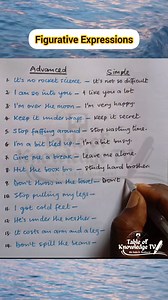 Figurative Expressions
Advanced Simple
1. It's no rocket science - It's not so difficult
2. I am so into you - I like you a lot
3. I'm over the moon - I'm very happy
4. Keep it under wraps - keep it secret.
5. Stop faffing around - stop wasting time.
6. I'm a bit tied up - I'm a bit busy.
7. Give me a break - leave me alone.
8. Hit the books - study hard
9. Don't throw in the towel - Don't
10. Stop pulling my legs -
11. I got cold feet -
12. He's under the weather -
13. It costs an arm and a leg -
14. Don't spill the beans -
Table of
Knowledge TV